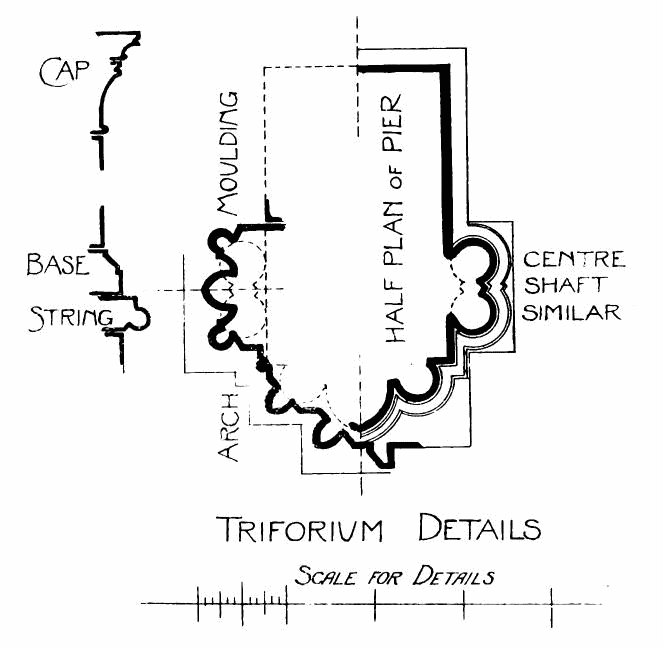 CAP
BASE
STRING
ARCH MOULDING
HALF PLAN OF PIER
CENTRE
SHAFT
SIMILAR
TRIFORIUM DETAILS
SCALE FOR DETAILS